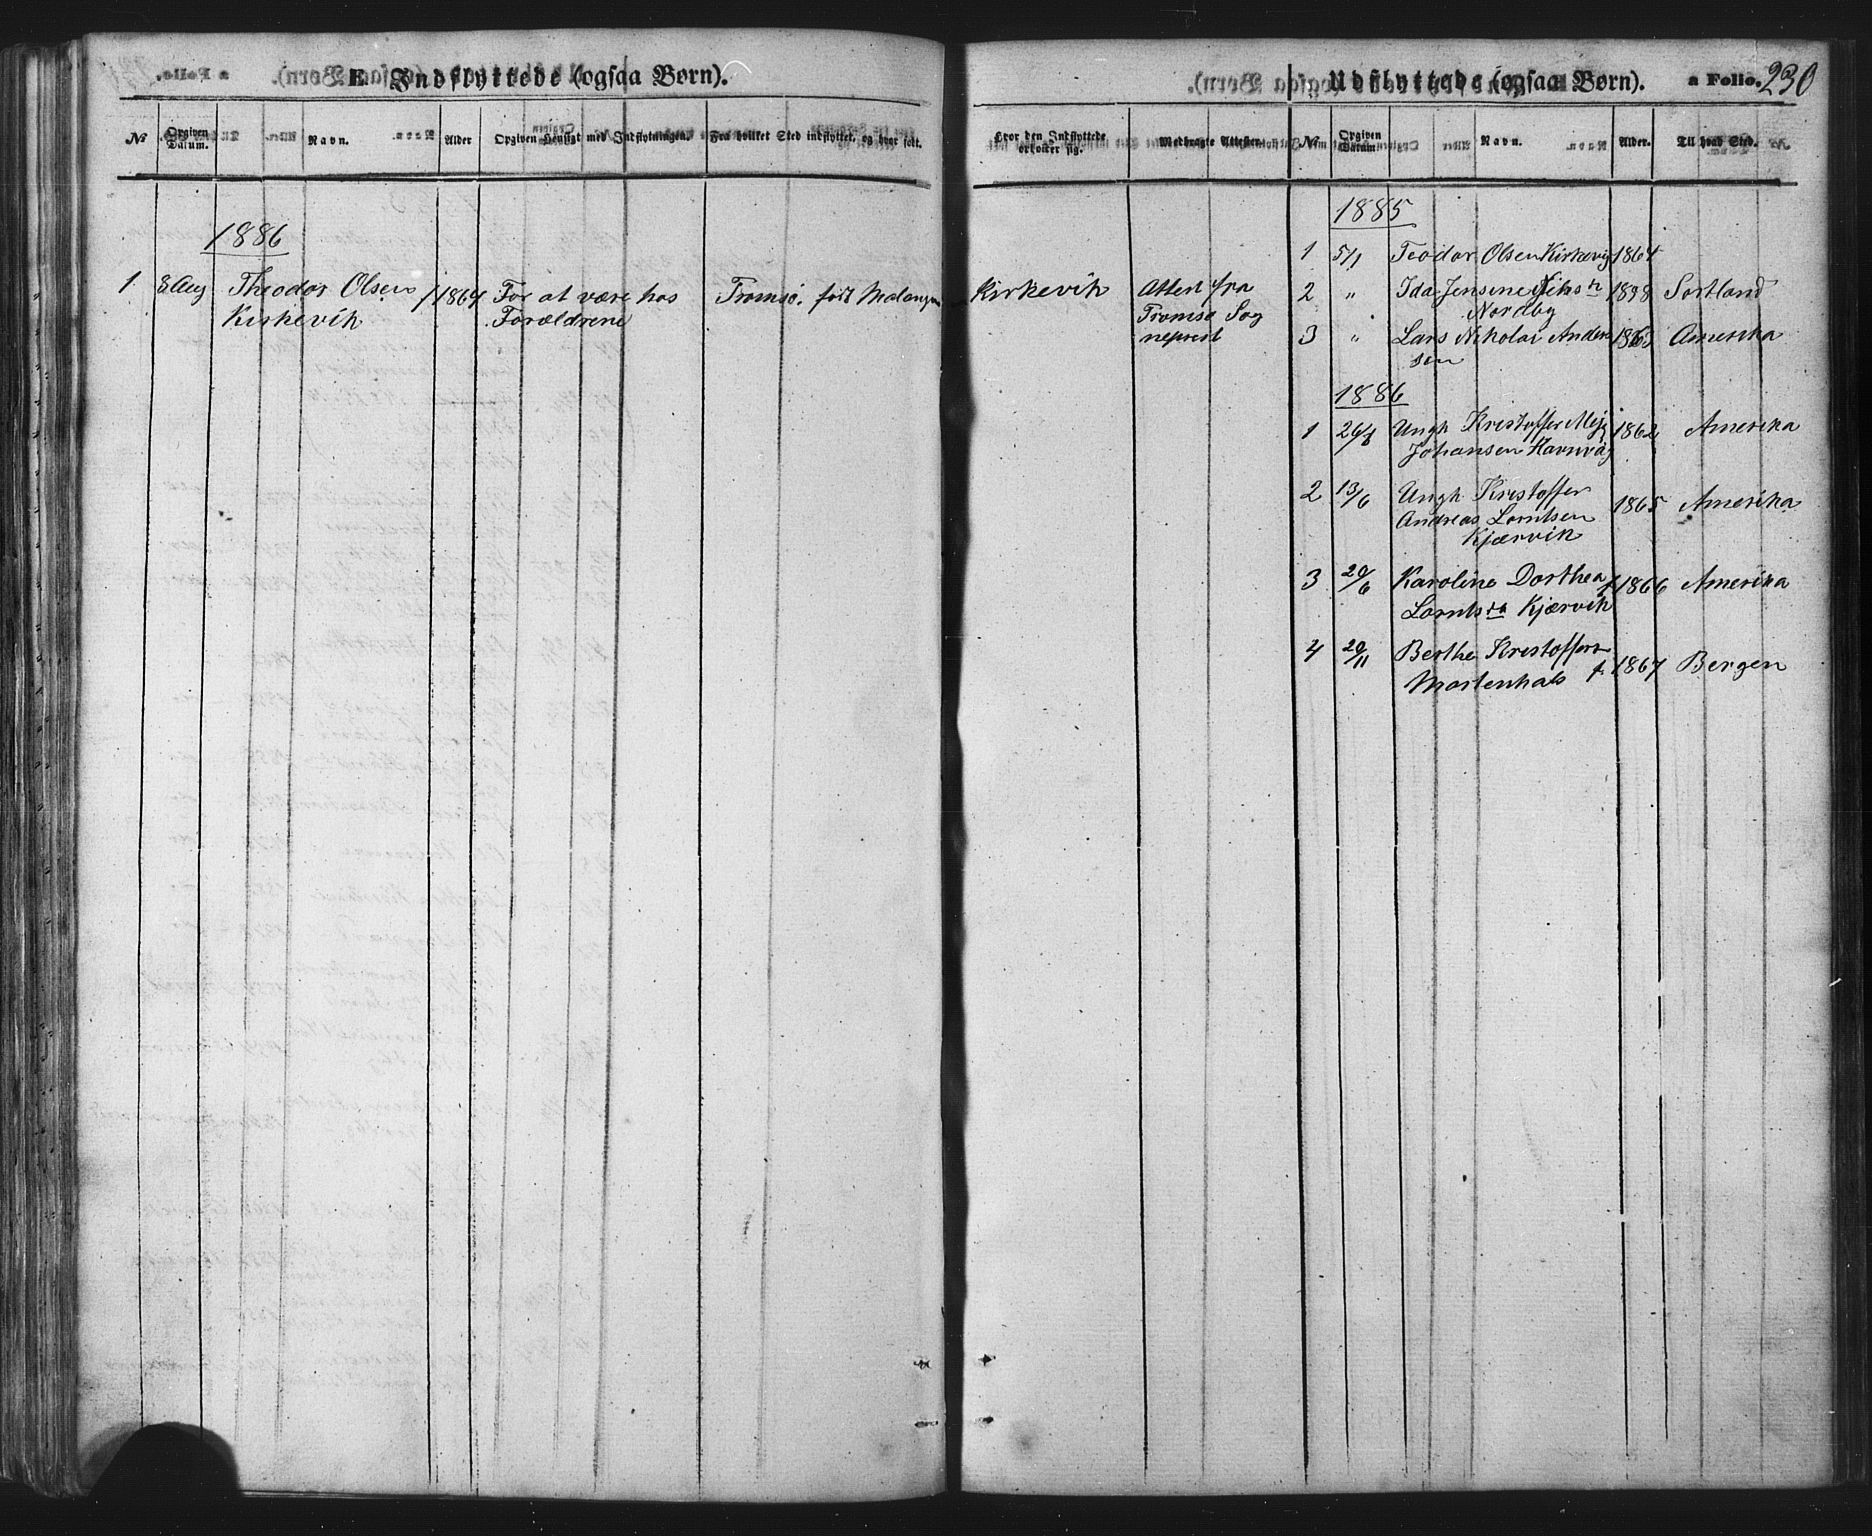 E. Indflyttede (ogsaa Børn).
№ Opgiven Datum. Navn. Alder Opgiven Hensigt med Indflytningen. Fra hvilket Sted indflyttet, og hvor født.
1886
1 8 Aug Theodor Olsen 1864 For at være hos Tromsø. født Malangen
Kirkevik Forældrene
Udflyttede (ogsaa Børn). a Folio. 230
Hvor den Indflyttede opholder sig. Medbragte Attester. № Opgiven Datum Navn. Alder. Til hvad Sted.
Kirkevik Attest fra
Tromsø Sog
neprest
1885
1 5/1 Teodor Olsen Kirkevig 1864
2 " Ida Jensine 18 8 Sortland
Nordby
3 " Lars Nikolai Ander 186 Amerika
sen
1886
1 Ungk Kristoffer 1862 Amerika
Johansen
2 13/6 Ungk Kristoffer
Andreas Lorntsen 1865 Amerika
Kjærvik
3 20/6 Karoline Dorthea 1866 Amerika
Lornts Kjærvik
4 20/11 Berthe Kristoffers
Mortenhals 1867 Bergen